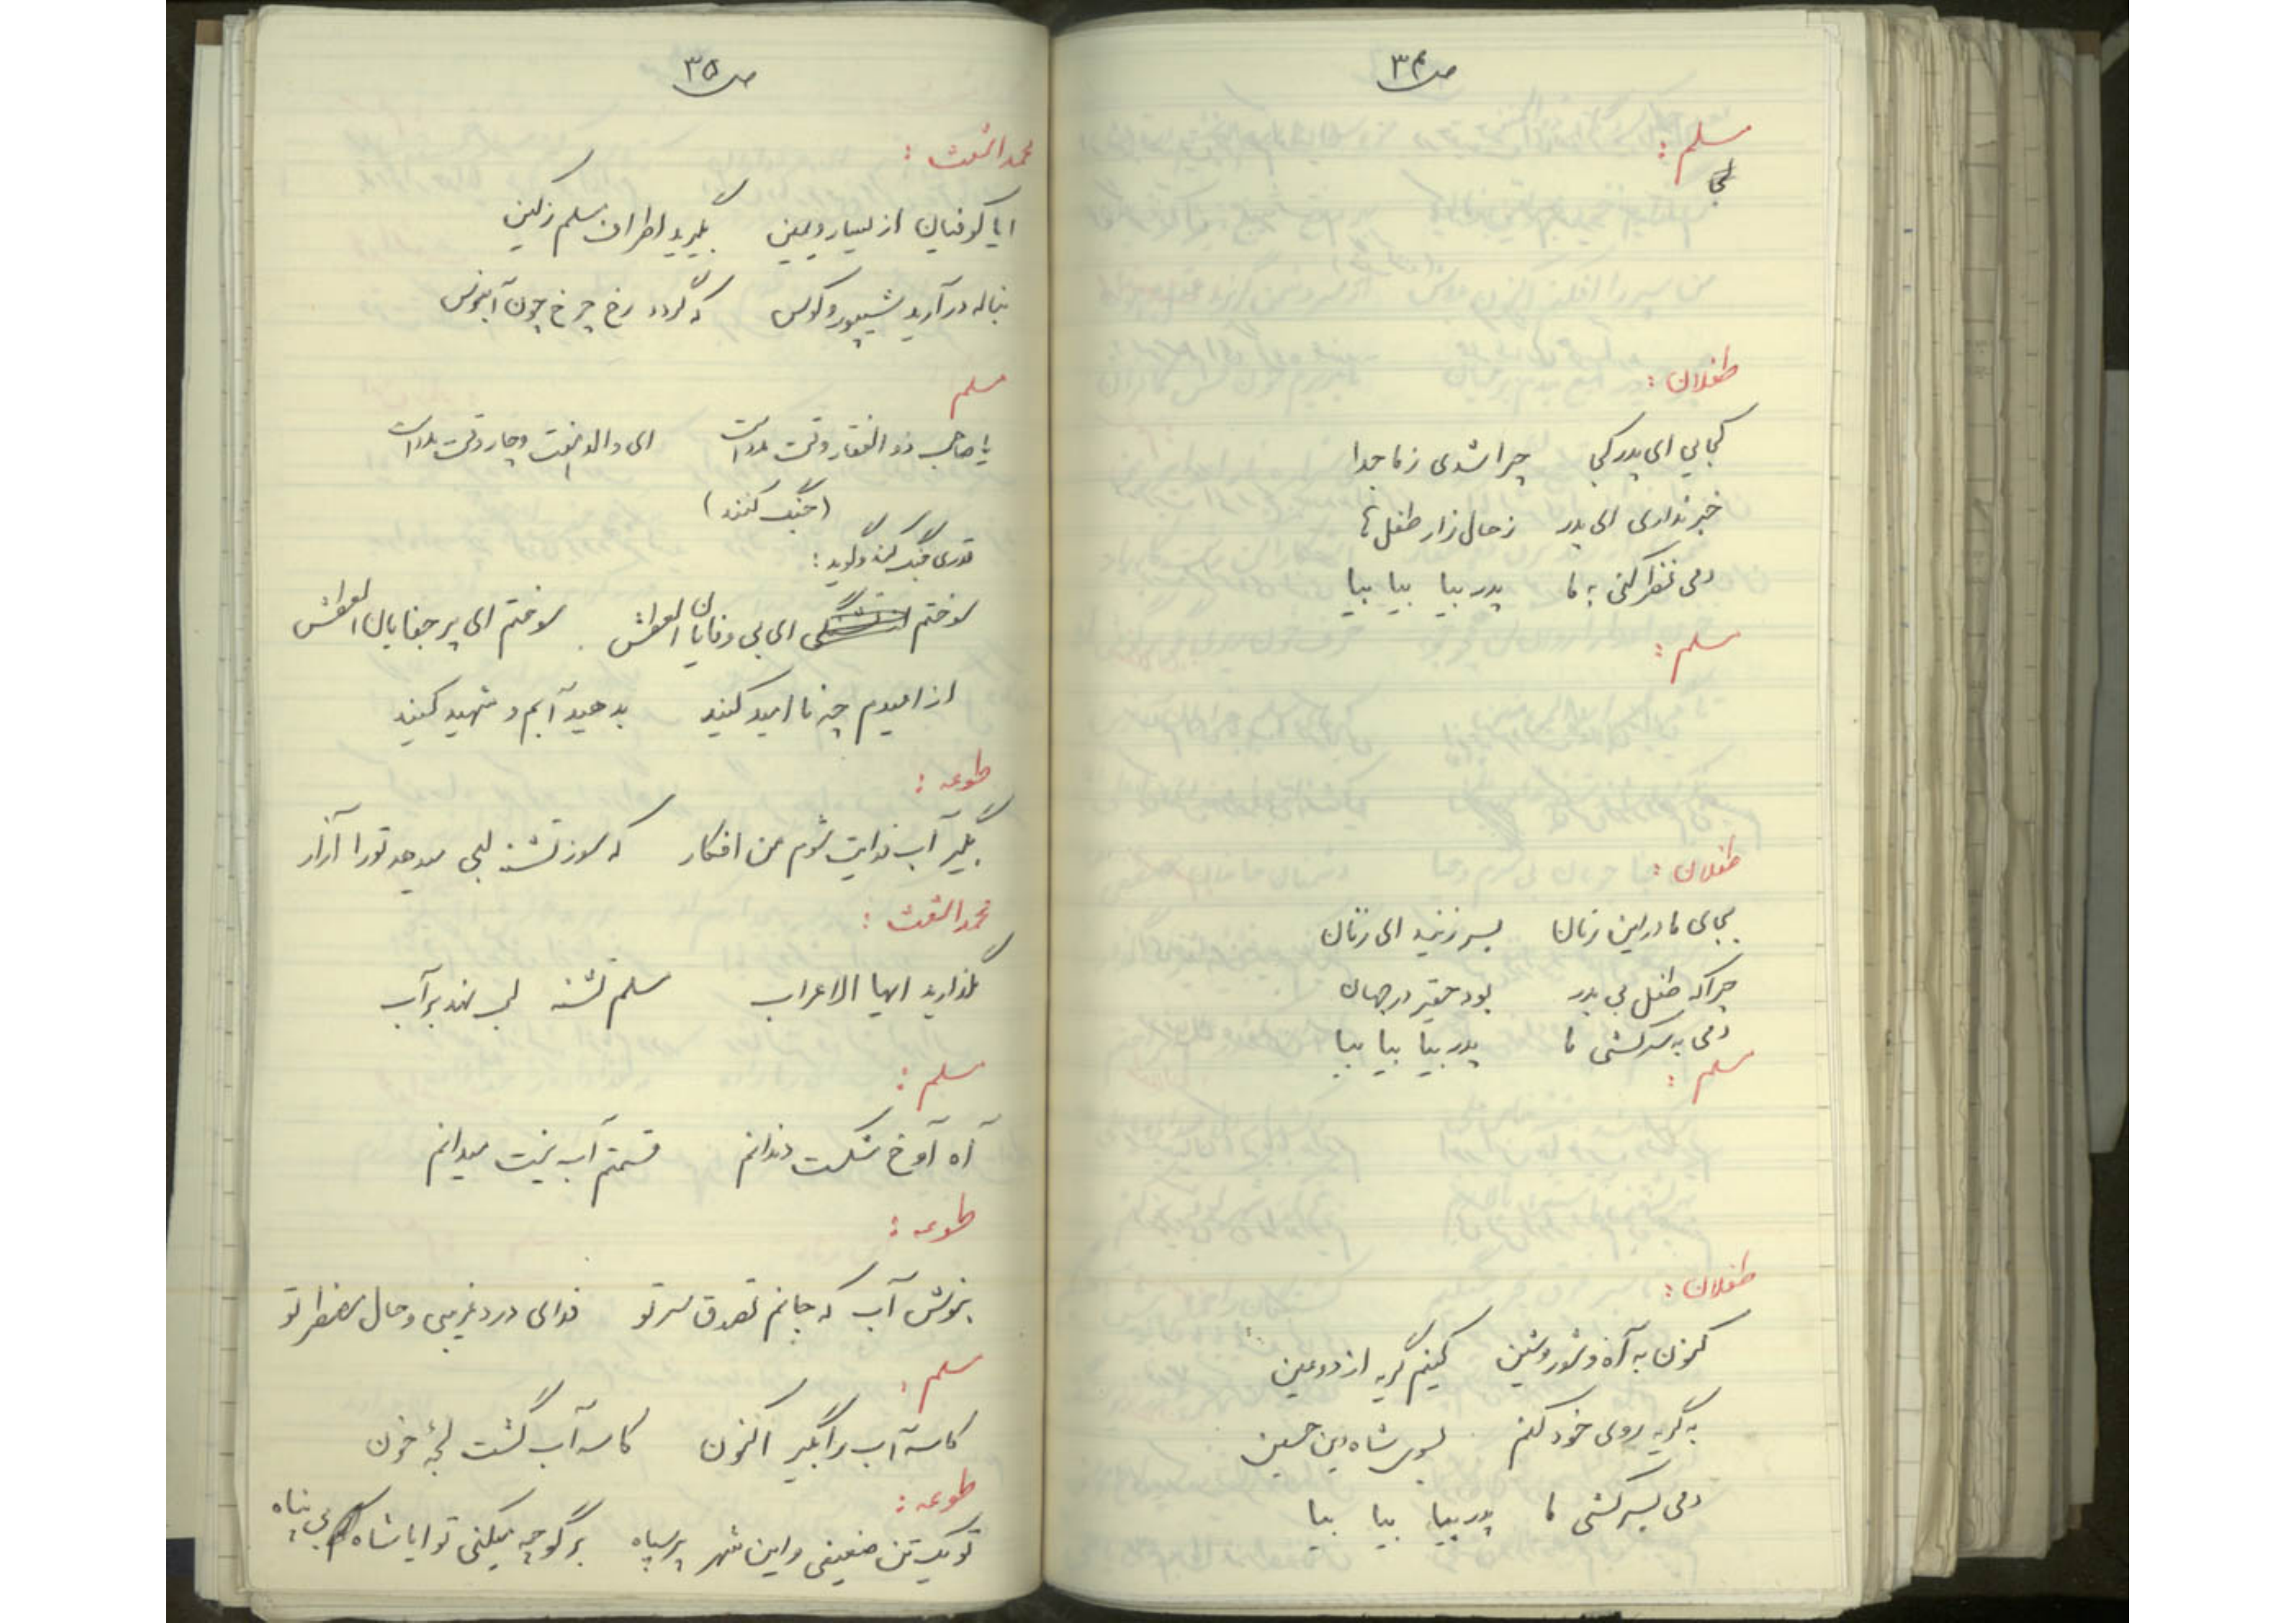 ص ۳۴
مسلم :
طفلان :
کجایی ای پدر کجا چرا شدی ز ما جدا
خبر نداری ای پدر ز حال زار طفل ها
دمی نظر کنی به ما پدر بیا بیا بیا
مسلم :
طفلان :
بجای ما در این زمان بسر زنید ای زنان
چرا که طفل بی پدر بود حقیر در جهان
دمی به سرکشی ما پدر بیا بیا بیا
مسلم :
طفلان :
کنون به آه و شور و شین کنیم گریه از دو عین
به گریه روی خود کنم بسوی شاه دین حسین
دمی بسرکشی ما پدر بیا بیا بیا
ص ۳۵
محمد اشعث :
ایا کوفیان از یسار و یمین بگیرید اطراف مسلم ز کین
بناله در آرید شیپور و کوس که گردد رخ چرخ چون آبنوس
مسلم
یا صاحب ذوالفقار وقت مدد است ای والد هفت و چار وقت مدد است
(جنگ کنند)
قدری جنگ کند و گوید :
سوختم ای بی وفایان العطش سوختم ای پر جفایان العطش
از امیدم چه نا امید کنید بدهید آبم و شهید کنید
طوعه :
بگیر آب فدایت شوم من افکار که سوز تشنه لبی میدهد تو را آزار
محمد اشعث :
نگذارید ایها الاعراب مسلم تشنه لب نهد بر آب
مسلم :
آه آوخ شکست دندانم قسمتم آب نیست میدانم
طوعه :
بنوش آب که جانم تصدق سر تو فدای درد غریبی و حال مضطر تو
مسلم :
کاسه آب را بگیر اکنون کاسه آب گشت لجهٔ خون
طوعه :
تو یک تن ضعیفی و این شهر پر سپاه برگو چه میکنی تو ایا شاه بی پناه